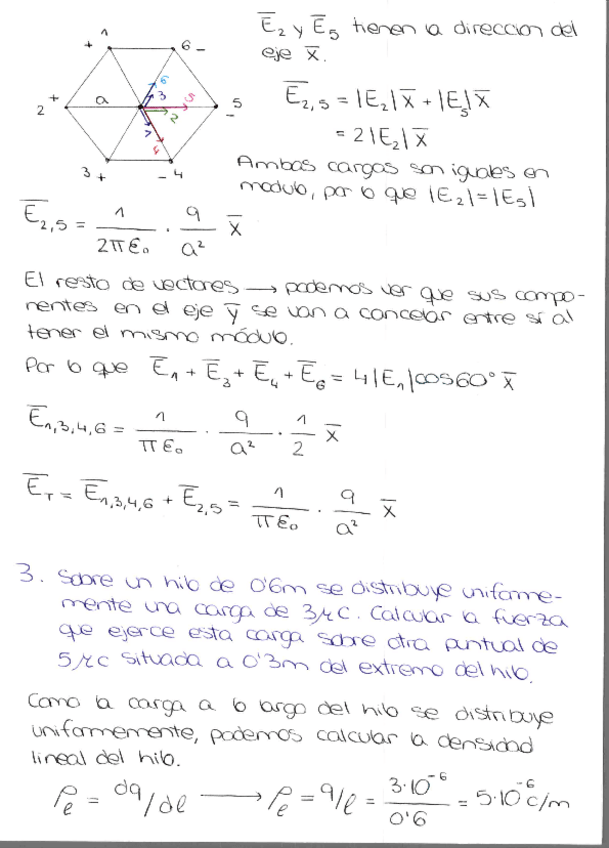 1
+
6 -
2
+
a
5
-
3 +
- 4
6
3
5
2
1
4
E̅₂ y E̅₅ tienen la direccion del
eje x̅.
E̅₂,₅ = |E₂| x̅ + |E₅| x̅
= 2|E₂| x̅
Ambas cargas son iguales en
modulo, por lo que |E₂| = |E₅|
E̅₂,₅ = 1/(2πε₀) · q/a² x̅
El resto de vectores → podemos ver que sus compo-
nentes en el eje y̅ se van a cancelar entre sí al
tener el mismo módulo.
Por lo que E̅₁ + E̅₃ + E̅₄ + E̅₆ = 4|E₁|cos60° x̅
E̅₁,₃,₄,₆ = 1/(πε₀) · q/a² · 1/2 x̅
E̅_T = E̅₁,₃,₄,₆ + E̅₂,₅ = 1/(πε₀) · q/a² x̅
3. Sobre un hilo de 0'6m se distribuye uniforme-
mente una carga de 3μC. Calcular la fuerza
que ejerce esta carga sobre otra puntual de
5μC situada a 0'3m del extremo del hilo.
Como la carga a lo largo del hilo se distribuye
uniformemente, podemos calcular la densidad
lineal del hilo.
ρₑ = dq/dl → ρₑ = q/l = 3·10⁻⁶/0'6 = 5·10⁻⁶ C/m